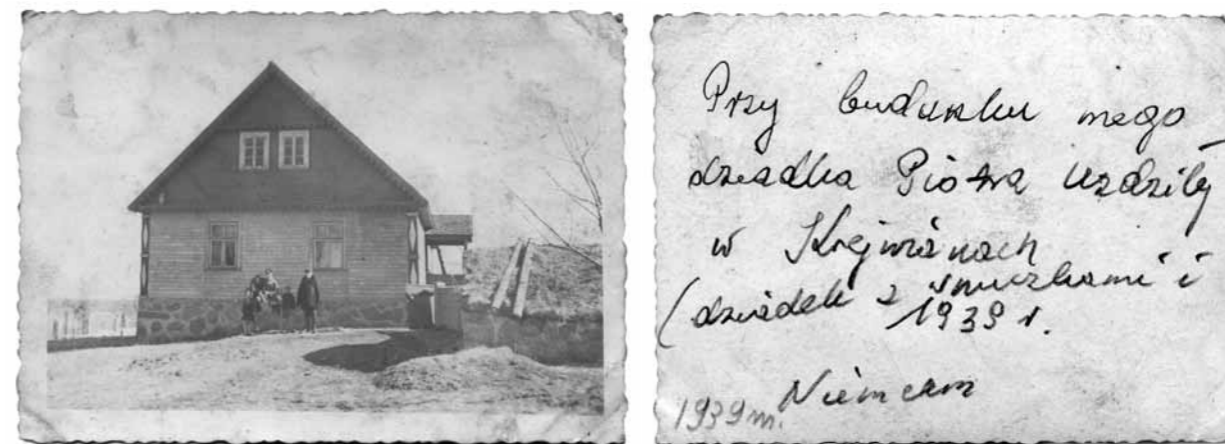 Przy budynku mego
dziadka Piotra Uzdziły
w Krejwianach
(dziadek z wnuczkami i
1939 r.
Niemcem
1939 m.